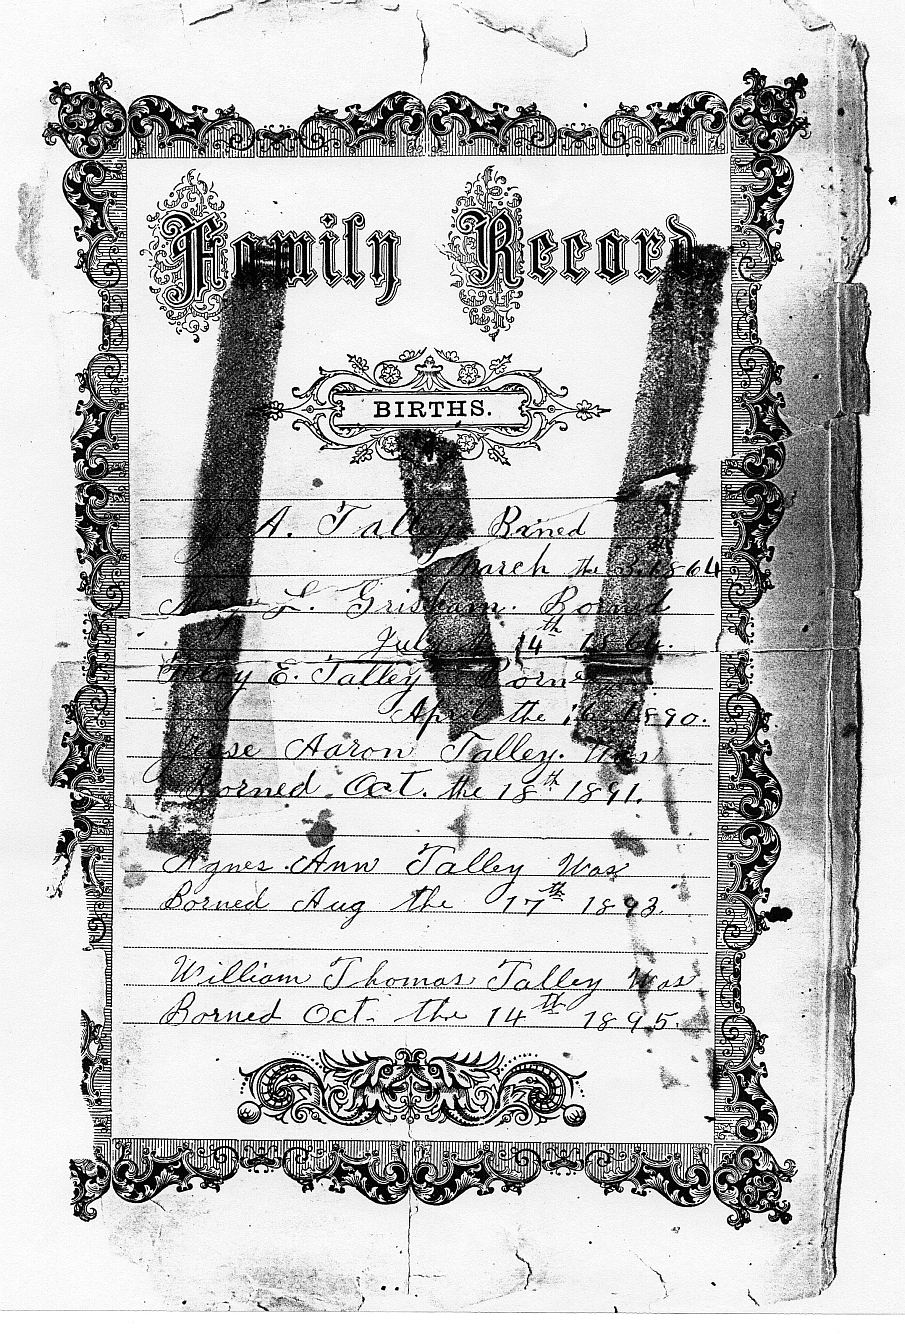 Family Record
BIRTHS.
A. Talley Borned
March the 3. 1864
L. Grisham. Borned
July 14th
E. Talley Borned
April the 16 1890.
Jesse Aaron Talley. Was
Borned Oct. the 18th 1891.
Agnes Ann Talley Was
Borned Aug the 17th 1893.
William Thomas Talley Was
Borned Oct. the 14th 1895.